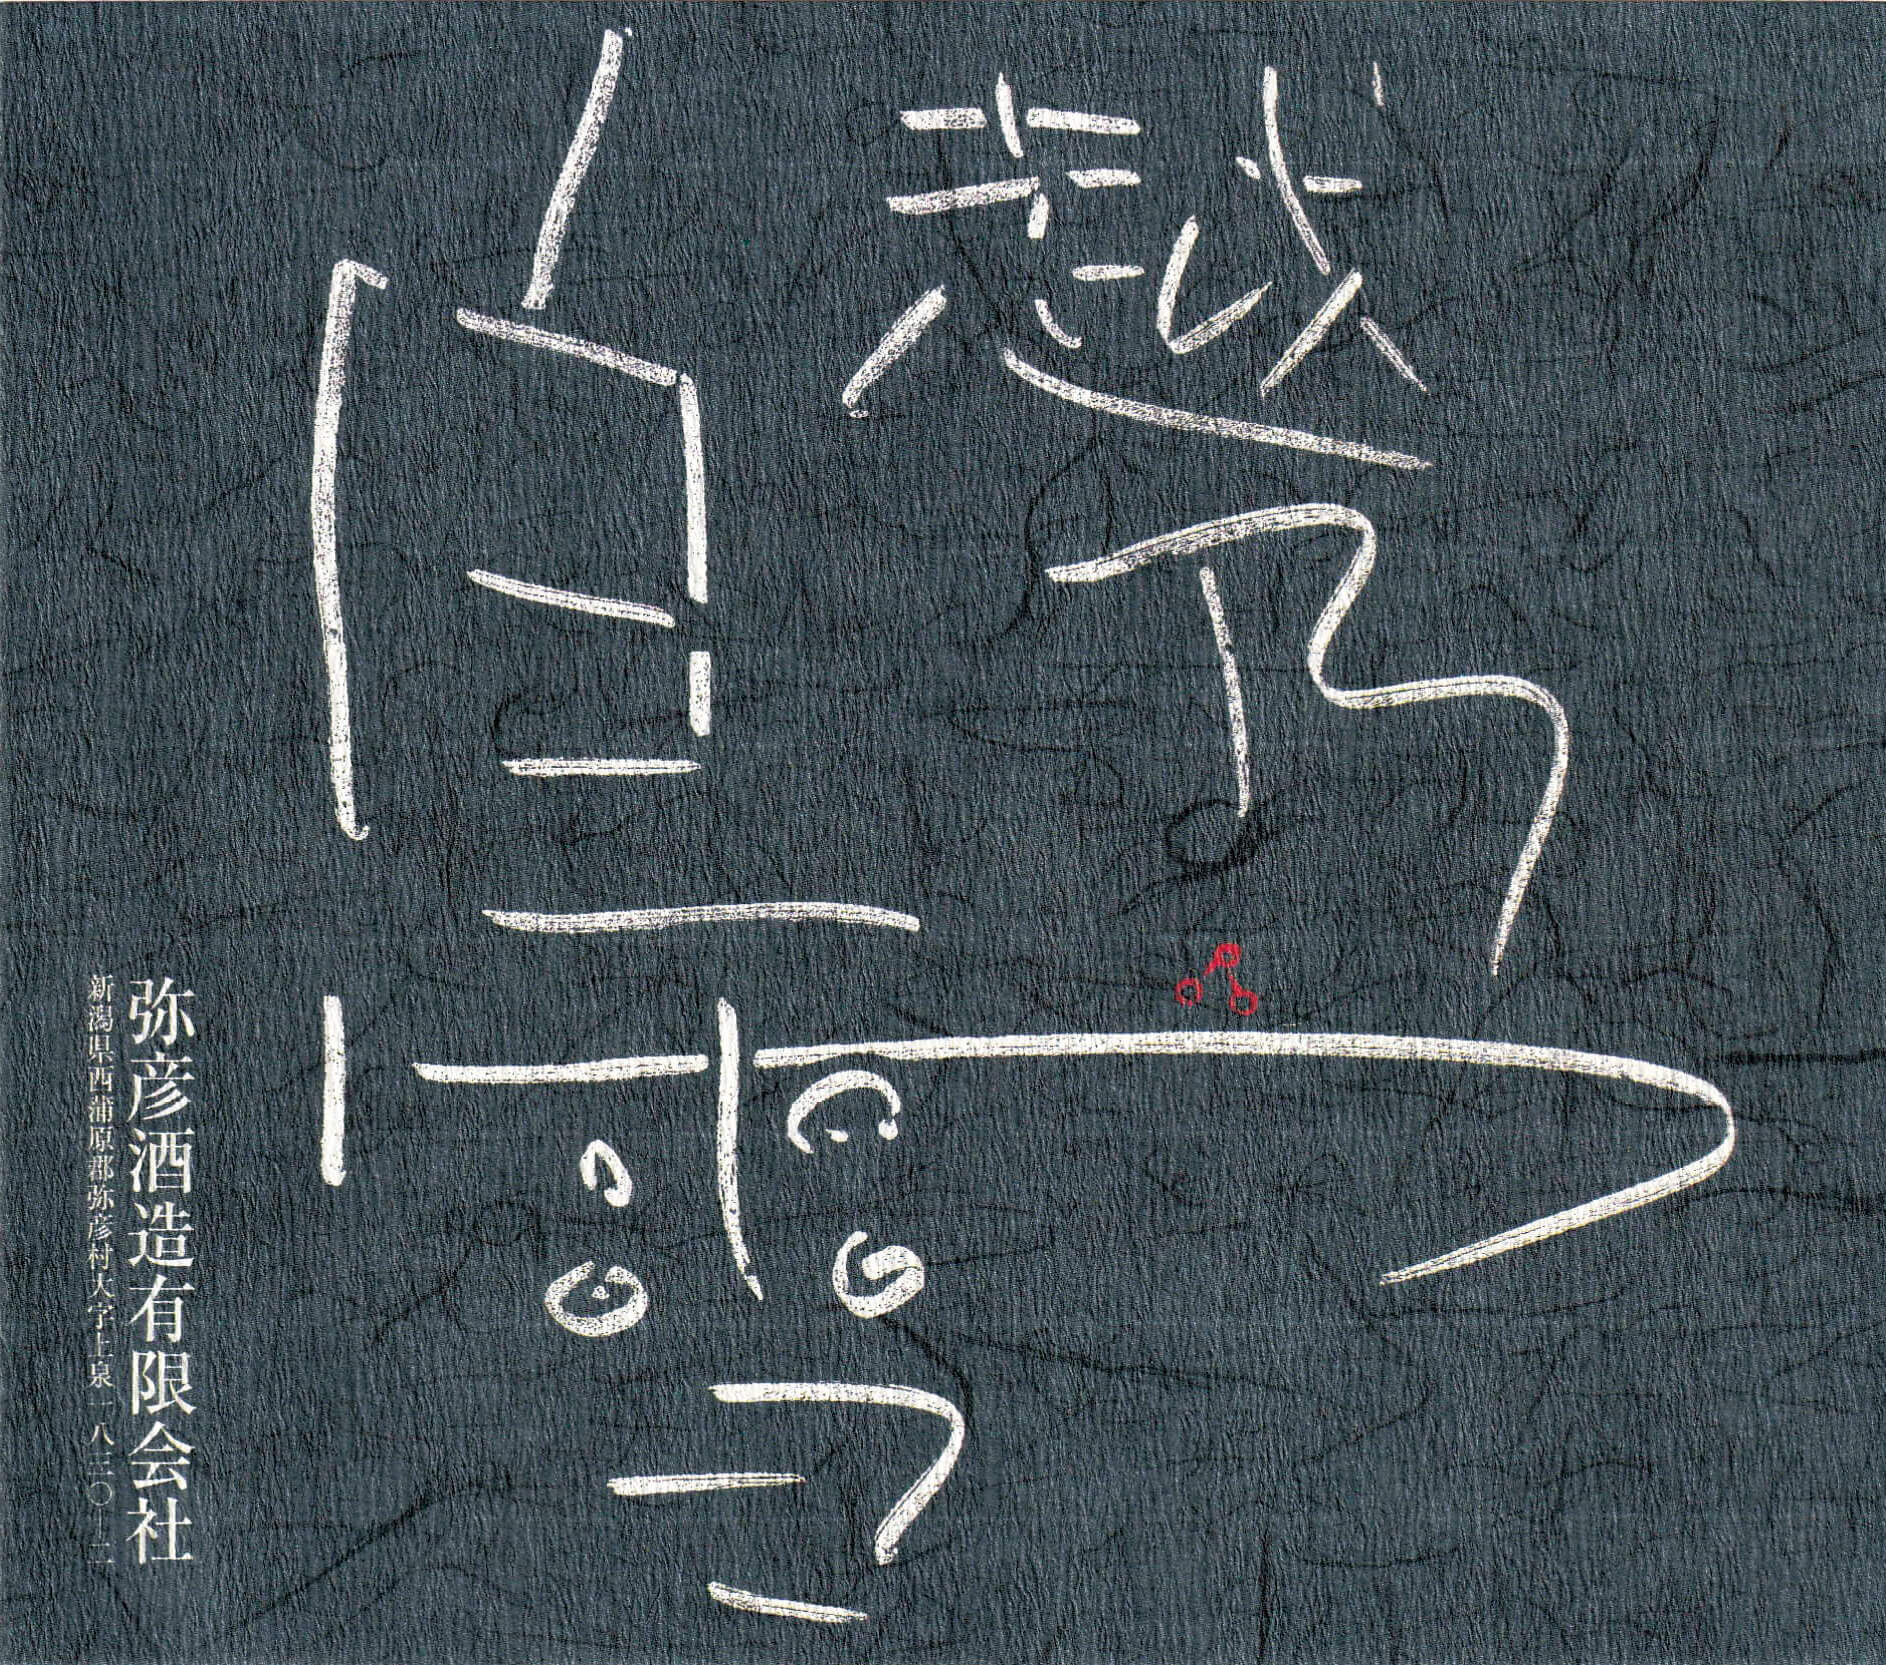 越乃
白雪
弥彦酒造有限会社
新潟県西蒲原郡弥彦村大字上泉一八三〇-一二